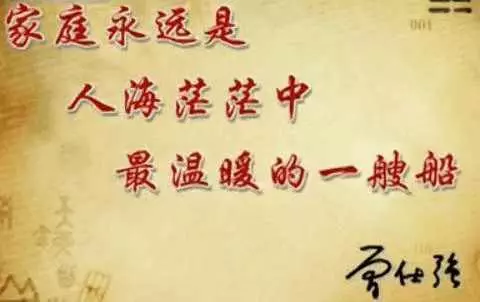 家庭永远是
人海茫茫中
最温暖的一艘船
曾仕强
001